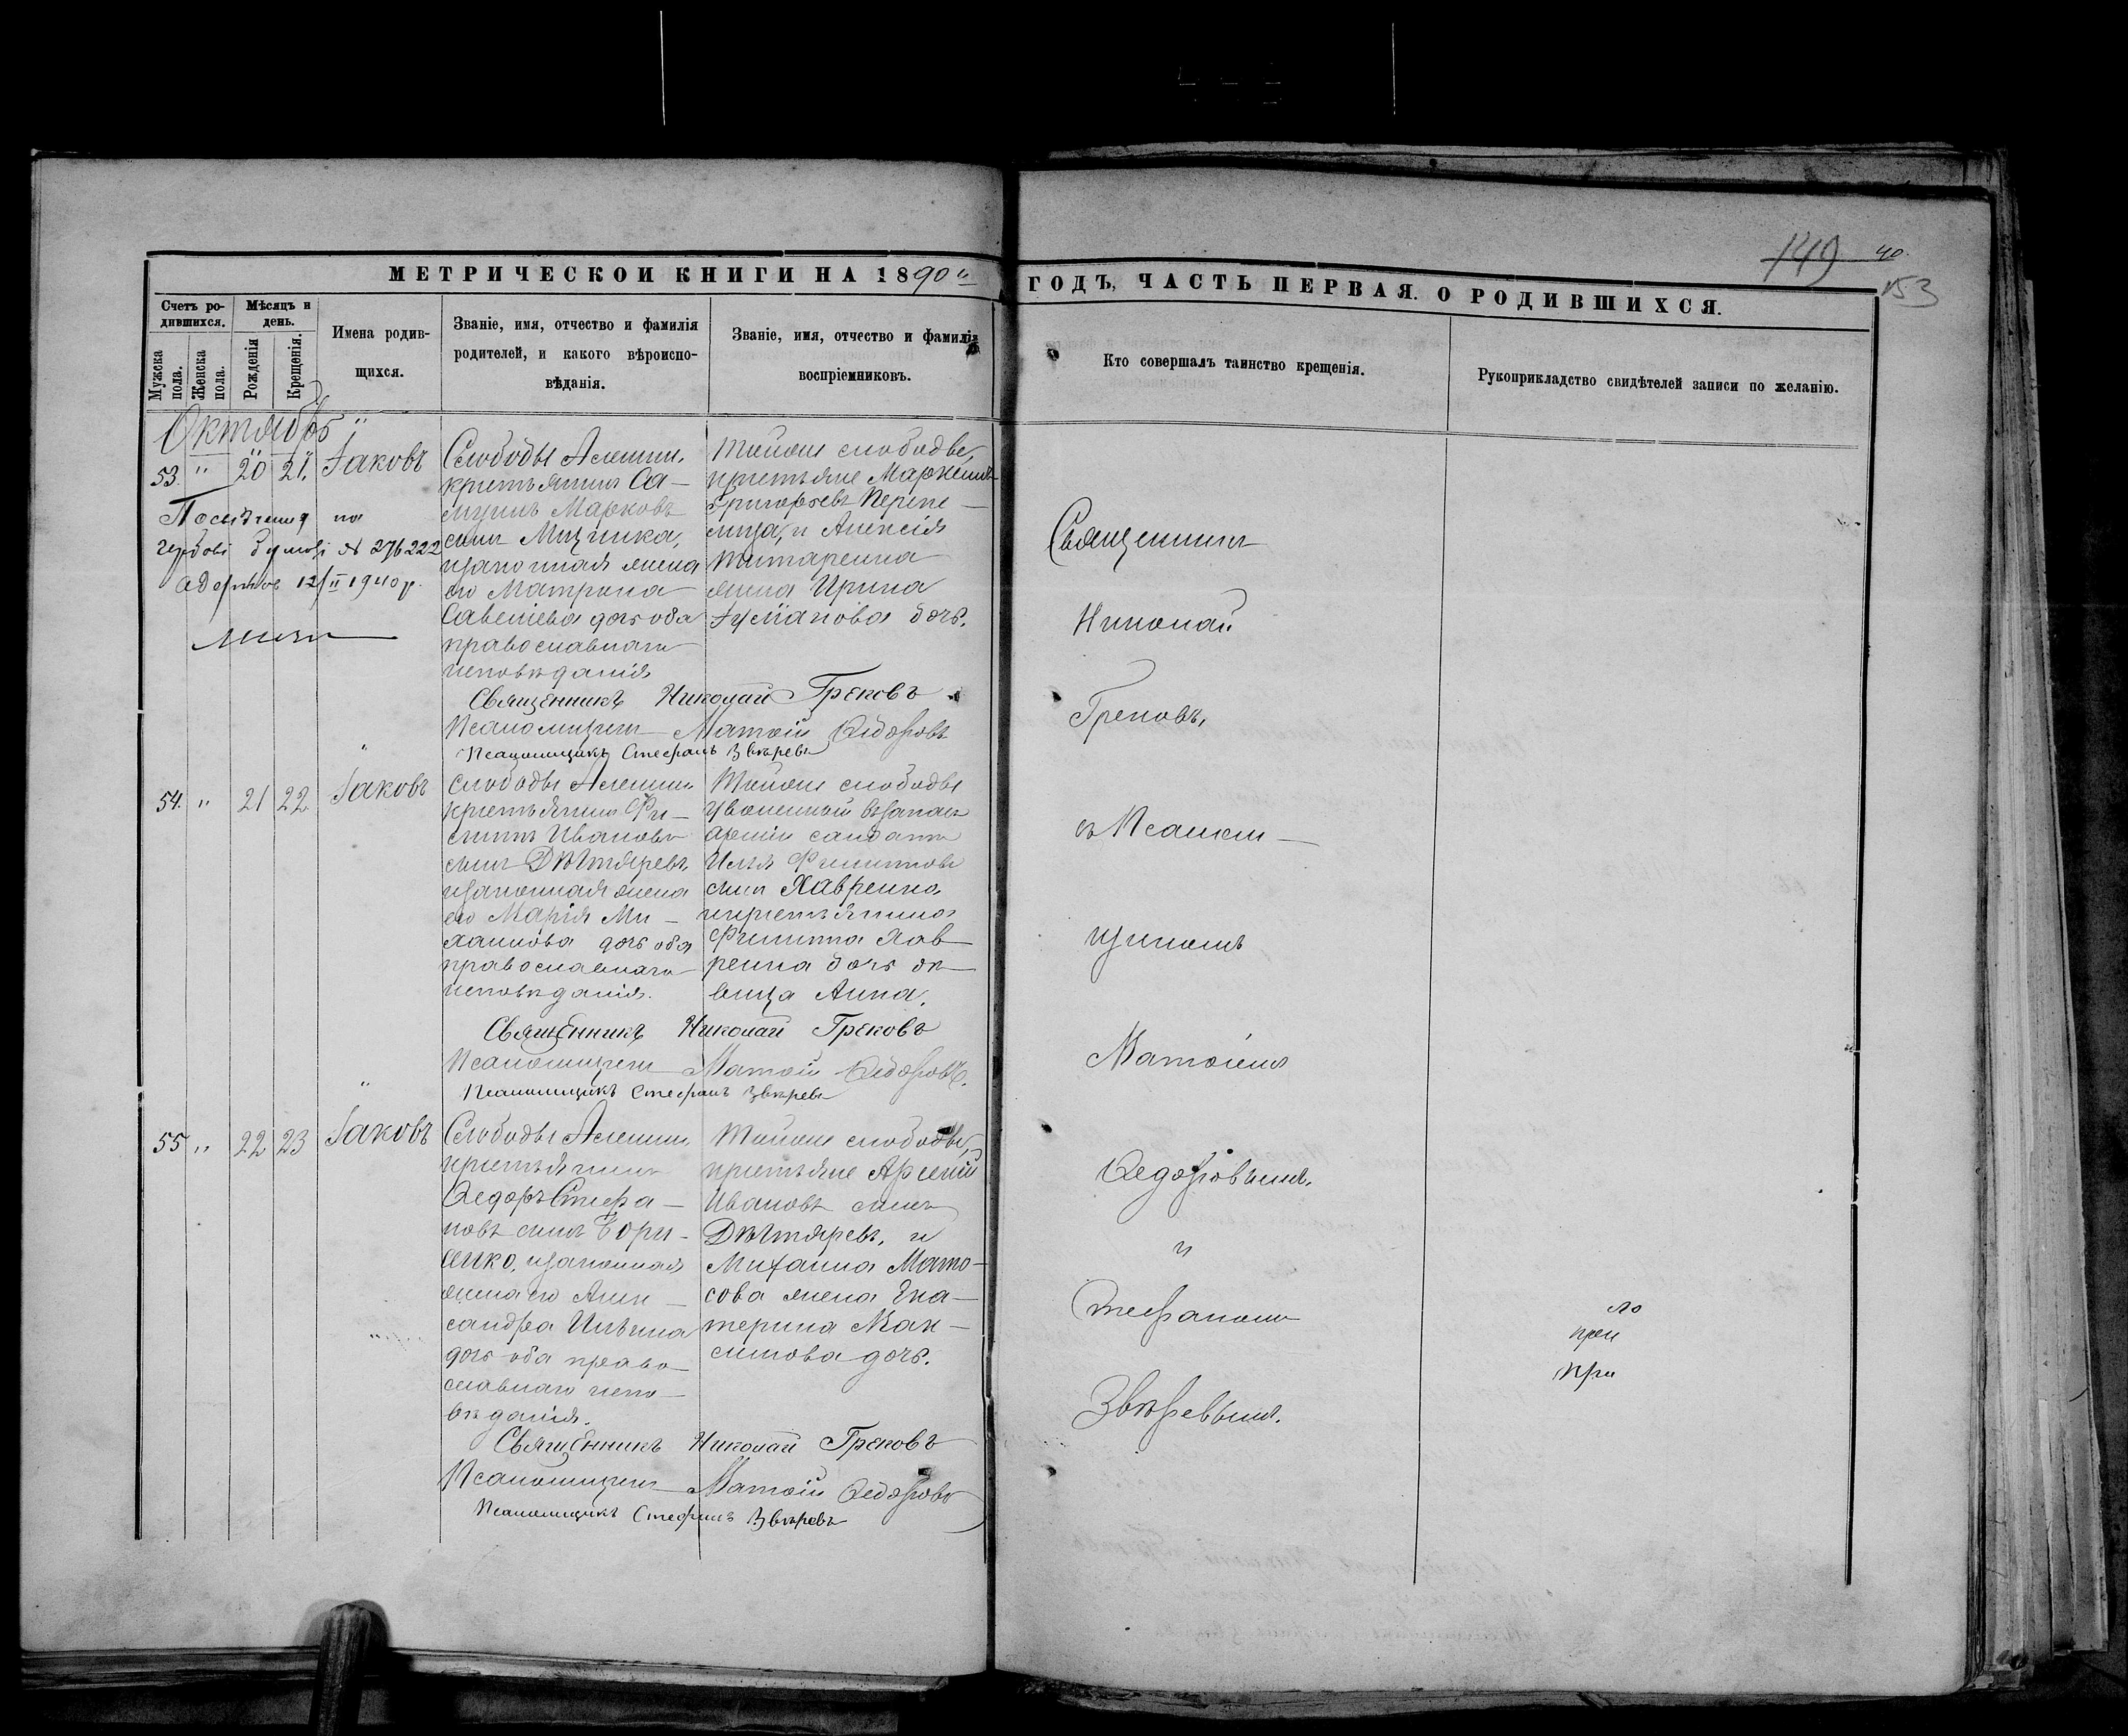 149 40.
153
МЕТРИЧЕСКОЙ КНИГИ НА 1890й
ГОДЪ, ЧАСТЬ ПЕРВАЯ. О РОДИВШИХСЯ.
Счетъ ро-
дившихся.
Мужска
пола.
Женска
пола.
Мѣсяцъ и
день.
Рожденія
Крещенія.
Имена родив-
щихся.
Званіе, имя, отчество и фамилія
родителей, и какого вѣроиспо-
вѣданія.
Званіе, имя, отчество и фамилія
воспріемниковъ.
Кто совершалъ таинство крещенія.
Рукоприкладство свидѣтелей записи по желанію.
Октябрь
53. " 20 21. Іаковъ
Слободы
крестьянинъ Са-
муилъ Марковъ
сынъ
законная жена
его Матрона
Савеліева дочь оба
православнаго
исповѣданія
Тойже слободы,
крестьяне
Григорьевъ Перепе-
лица, и Алексія
Титаренка
жена Ирина
дочь.
Посвідчення
гербові № 276222
12/II 1940 р.
Священникъ Николай Грековъ
Псаломщикъ Матѳій Ѳедоровъ
Псаломщикъ Стефанъ Звѣревъ
54. " 21 22 Іаковъ
Слободы
крестьянинъ Фи-
липпъ Ивановъ
сынъ Дѣхтяревъ,
законная жена
его Марія Ми-
хаилова дочь оба
православнаго
исповѣданія.
Тойже слободы
уволенный въ запасъ
арміи солдатъ
Илья Филипповъ
сынъ Лавренко
и крестьянина
Филиппа Лав-
ренка дочь дѣ-
вица Анна.
Священникъ Николай Грековъ
Псаломщикъ Матѳій Ѳедоровъ.
Псаломщикъ Стефанъ Звѣревъ
55 " 22 23 Іаковъ
Слободы
крестьянинъ
Ѳедоръ Стефа-
новъ сынъ Бори-
сенко, законная
жена его Алек-
сандра Ильина
дочь оба право-
славнаго испо-
вѣданія.
Тойже слободы,
крестьяне Арсеній
Ивановъ сынъ
Дѣхтяревъ, и
Михаила Мато-
сова жена Ека-
терина Мак-
симова дочь.
Священникъ Николай Грековъ
Псаломщикъ Матѳій Ѳедоровъ
Псаломщикъ Стефанъ Звѣревъ
Священникъ
Николай
Грековъ,
съ Псалом-
щикомъ
Матѳіемъ
Ѳедоровымъ,
и
Стефаномъ
Звѣревымъ.
при